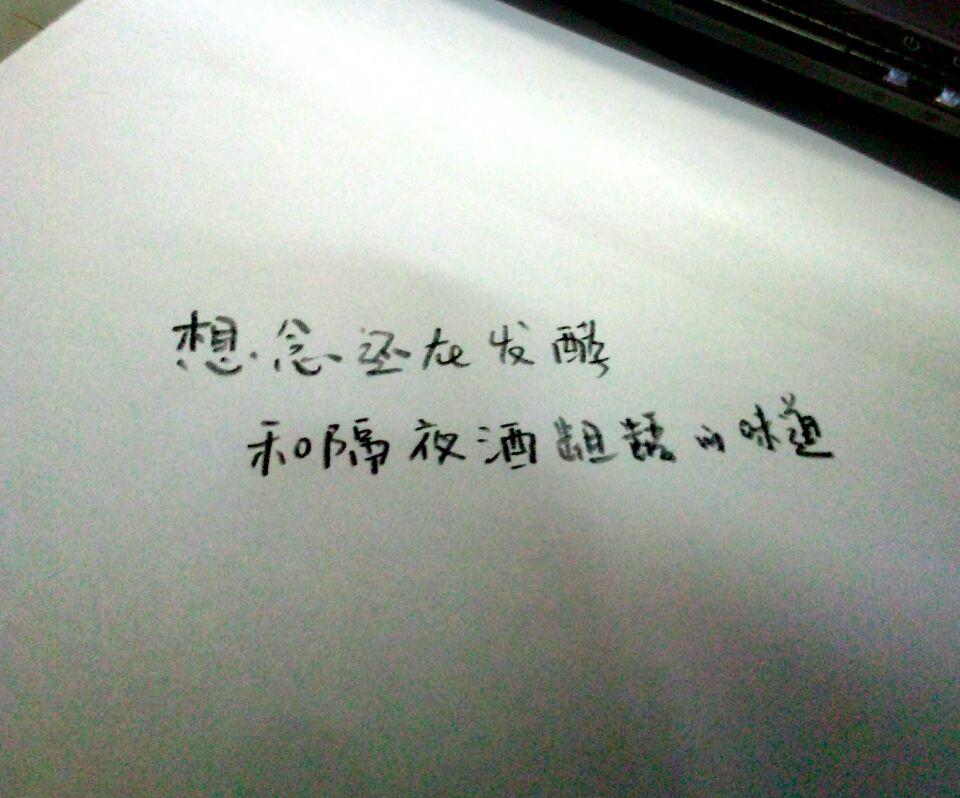 想念还在发酵
和隔夜酒龃龉的味道